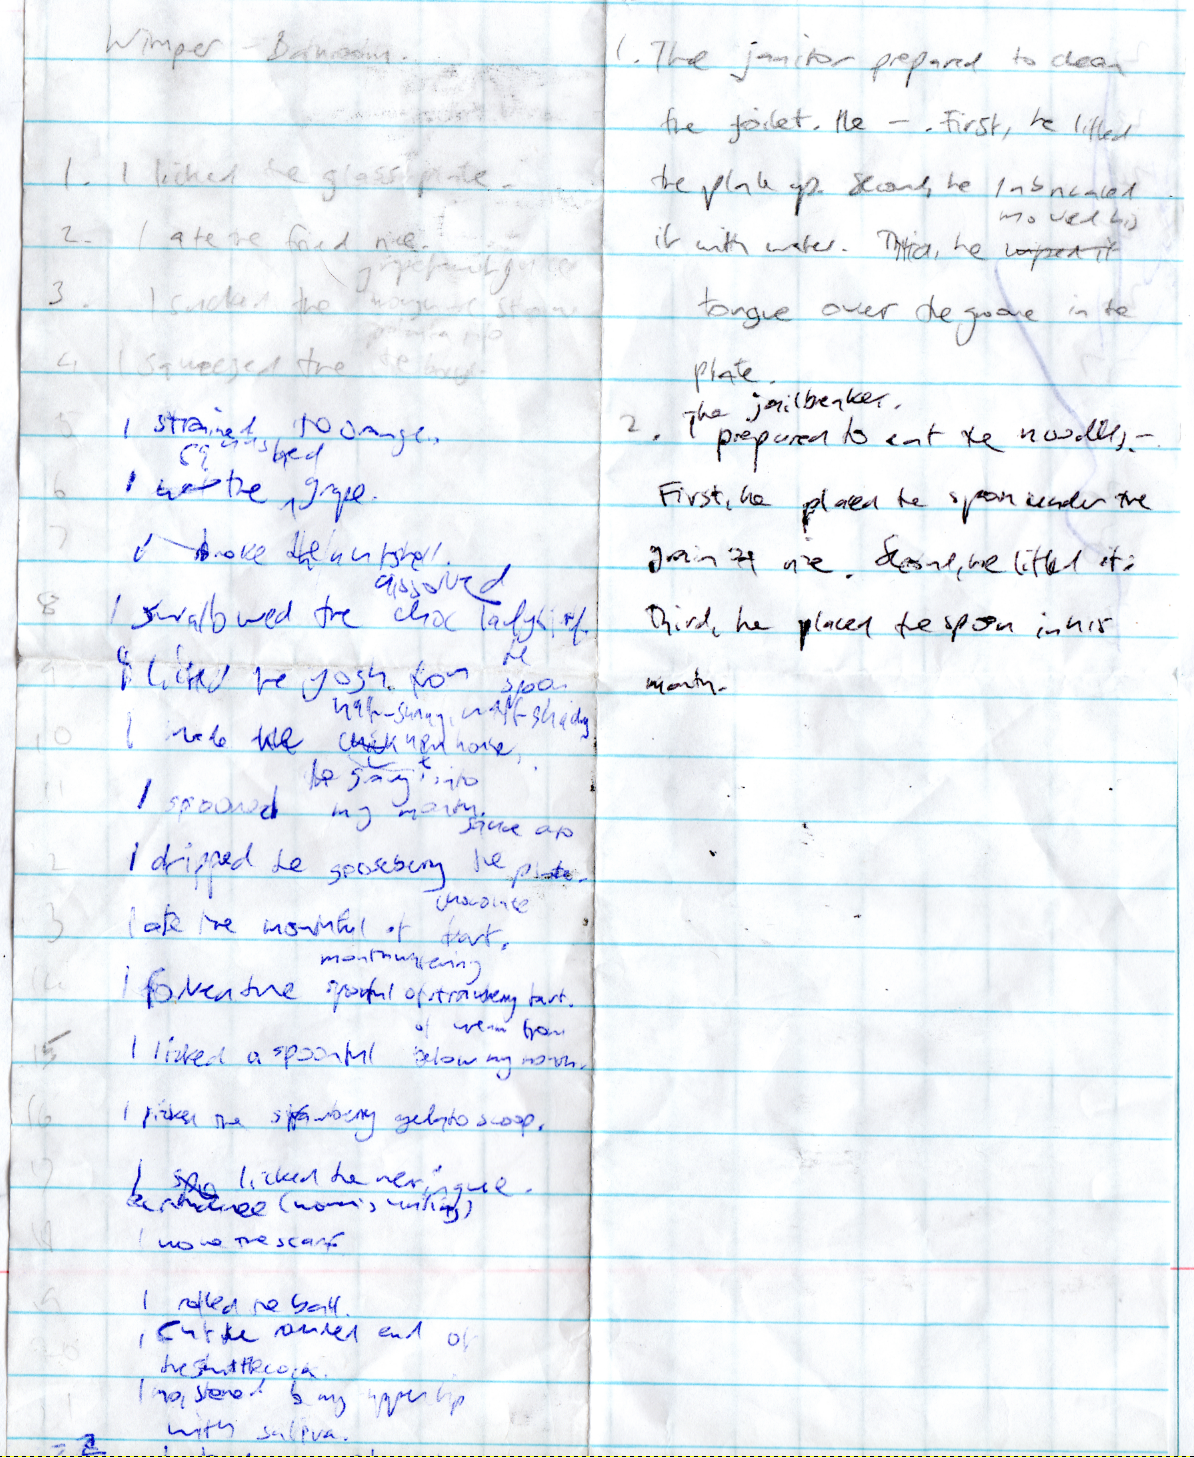 Wimper - Bathroom.
1. I licked the glass plate.
2. I ate the fried rice.
grapefruit juice
3. I sucked the
4. I squeezed the
5 I strained the orange.
squashed
6 I the grape.
7 I broke the nutshell.
dissolved
8 I swallowed the choc ladybird.
the
9. I licked the yogh. from spoon
half-sunny, half-shady
10 I made the hen house.
the into
11 I spooned my mouth.
12 I dripped the gooseberry the plate.
chocolate
13 I ate the mouthful of tart.
mouthwatering
14 I spoonful of strawberry tart.
of cream from
15 I licked a spoonful below my mouth.
16 I licked the strawberry gelato scoop.
17 I licked the meringue.
sentence
18 I wove the scarf
19 I rolled the ball.
I cut the rounded end of
the shuttlecock.
I moistened my upper lip
with saliva.
22
1. The janitor prepared to clean
the toilet. He -. First, he lifted
the plate up. Second, he lubricated
moved his
it with water. Third, he wiped it
tongue over the groove in the
plate.
The jailbreaker.
2. prepared to eat the noodles, -.
First, he placed the spoon under the
grain of rice. Second, he lifted it.
Third, he placed the spoon in his
mouth.